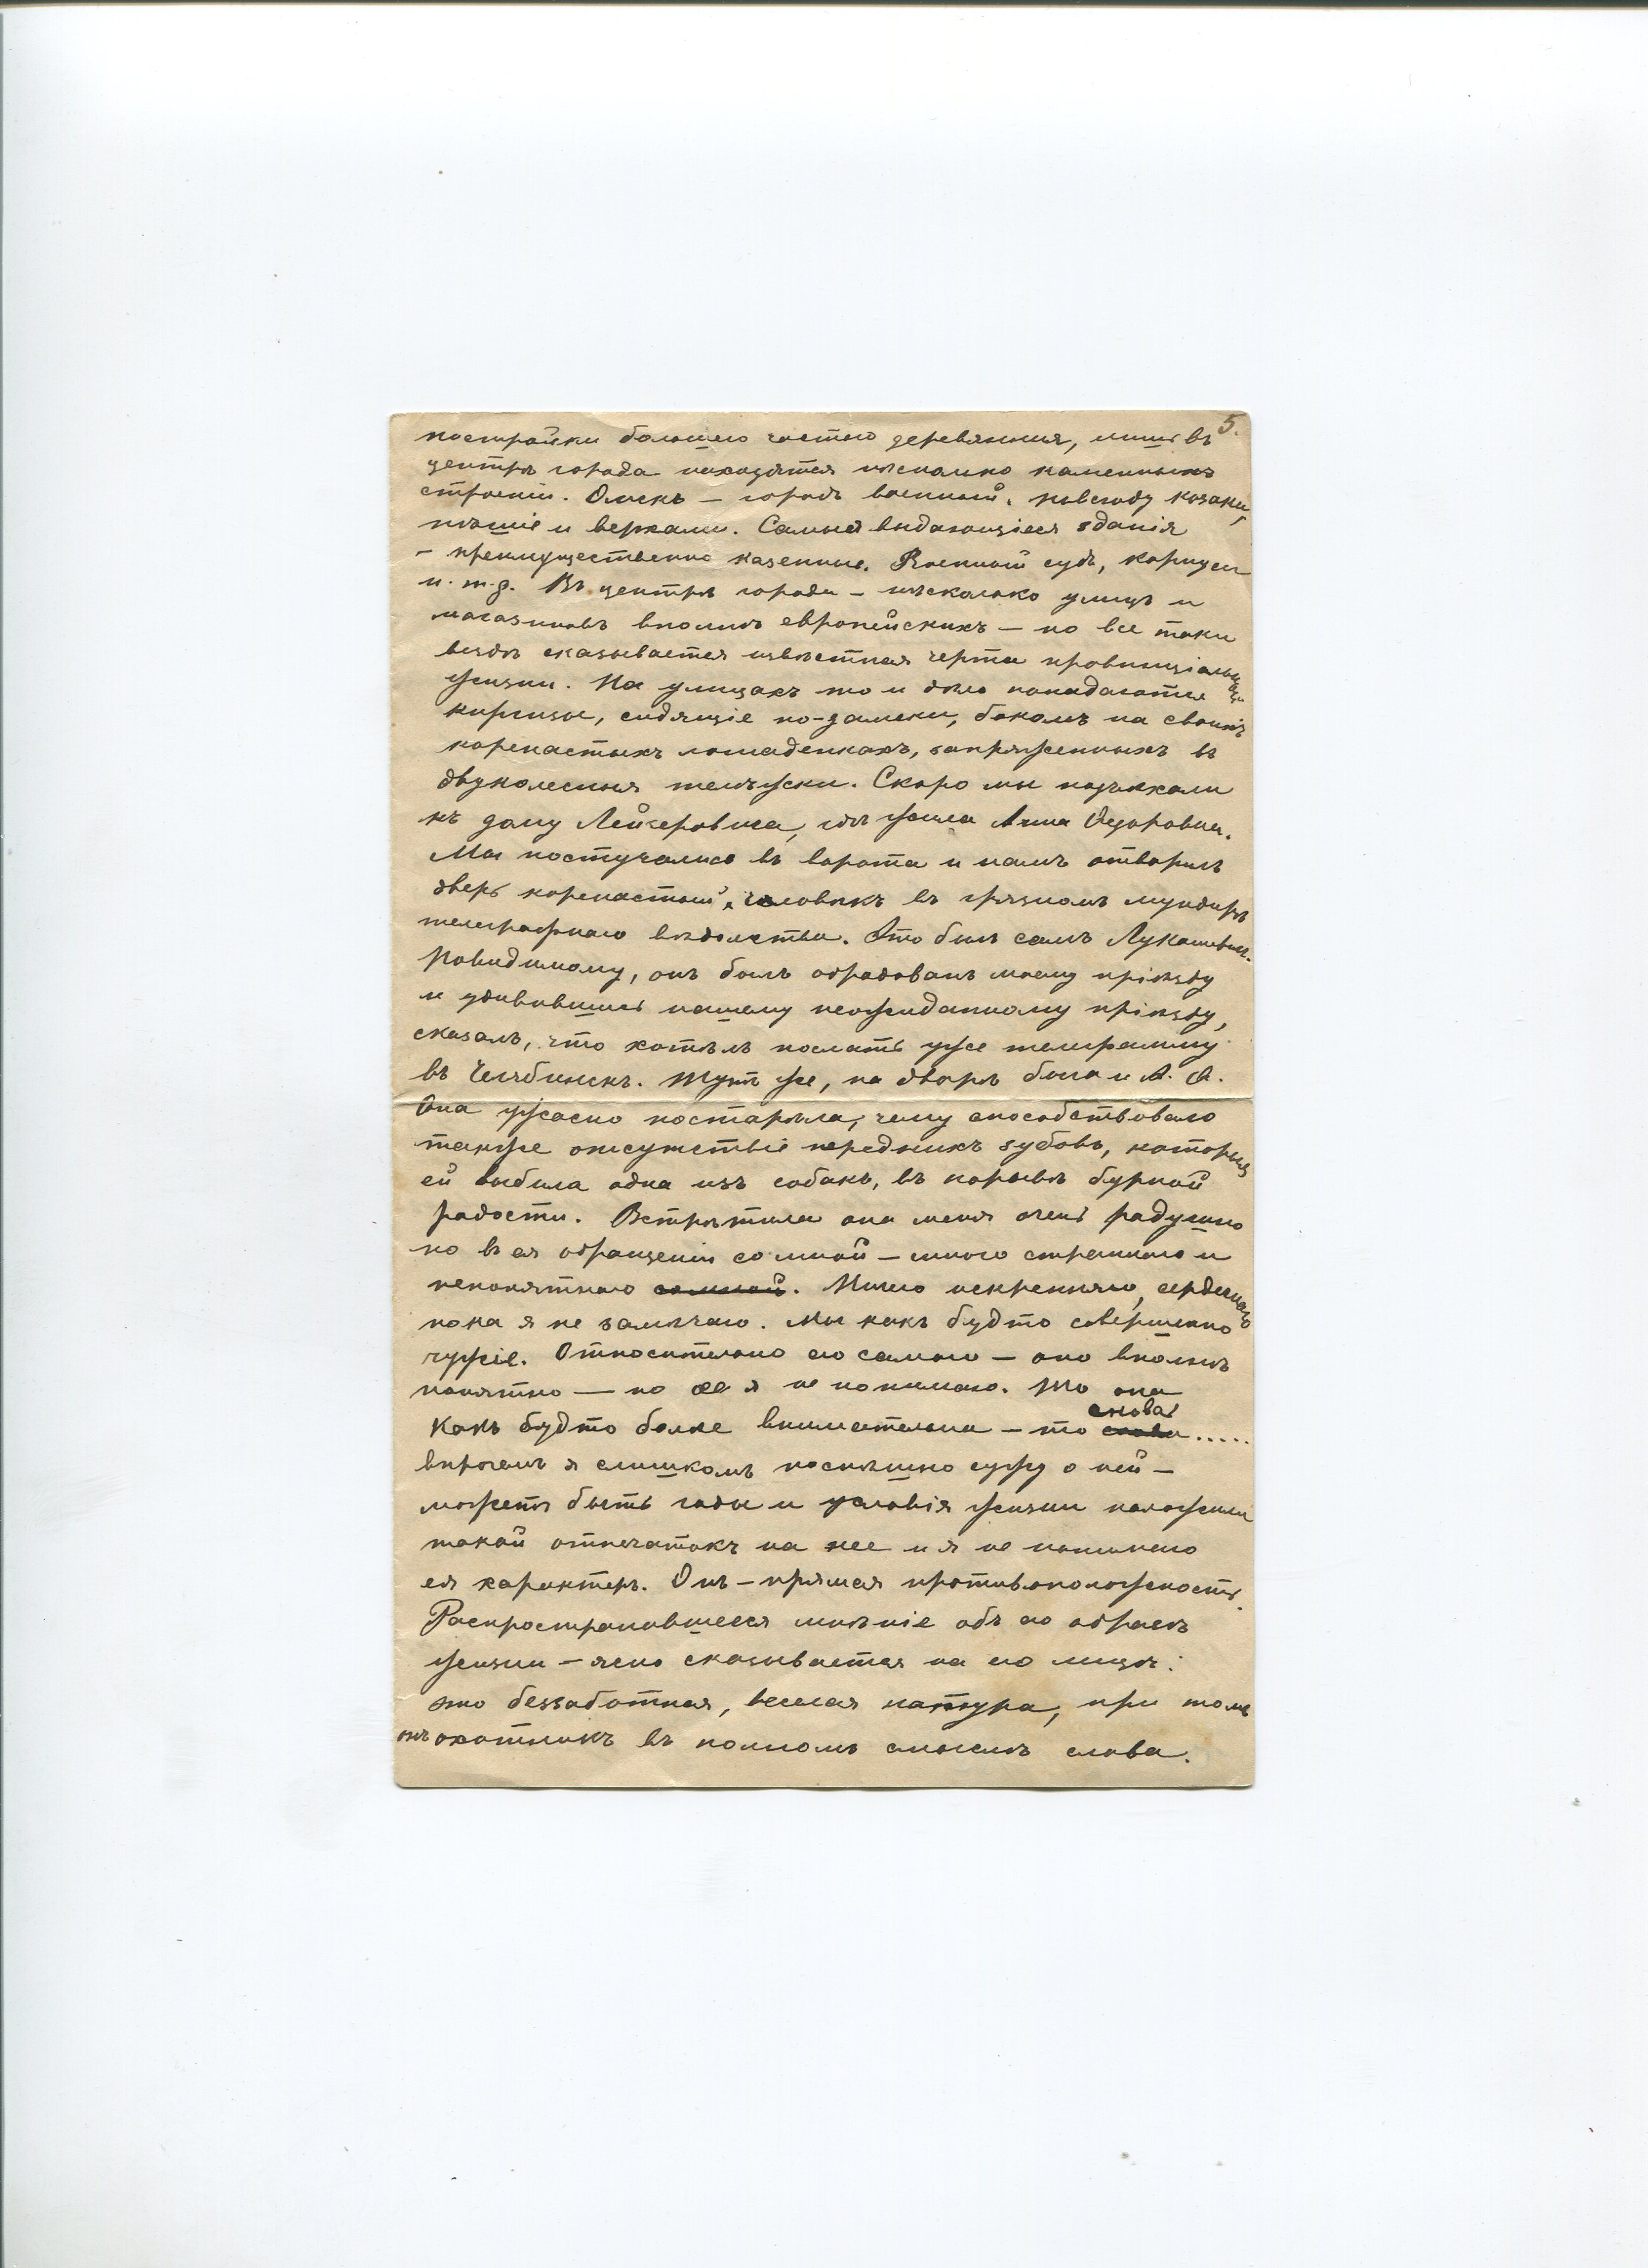 5.
постройки большею частью деревянныя, лишь въ
центрѣ города находятся нѣсколько каменныхъ
строеній. Омскъ – городъ военный. повсюду козаки,
пѣшіе и верхами. Самыя выдающіеся зданія
– преимущественно казенные. Военный судъ, корпусы
и. т. д. Въ центрѣ города – нѣсколько улицъ и
магазиновъ вполнѣ европейскихъ – но все таки
вездѣ сказывается извѣстная черта провинціальной
жизни. На улицахъ то и дѣло попадаются
киргизы, сидящіе по-дамски, бокомъ на своихъ
коренастыхъ лошаденкахъ, запряженныхъ въ
двуколесныя телѣжки. Скоро мы подъѣхали
къ дому Лейзеровича, гдѣ жила Анна Ѳедоровна.
Мы постучались въ ворота и намъ отворилъ
дверь коренастый, человѣкъ въ грязномъ мундирѣ
телеграфнаго вѣдомства. Это былъ самъ Лукашевич.
Повидимому, онъ былъ обрадованъ моему пріѣзду
и удивившись нашему неожиданному пріѣзду,
сказалъ, что хотѣлъ послать уже телеграмму
въ Челябинскъ. Тутъ же, на дворѣ была и А. Ѳ.
Она ужасно постарѣла, чему способствовало
также отсутствіе переднихъ зубовъ, которые
ей выбила одна изъ собакъ, въ порывѣ бурной
радости. Встрѣтила она меня очень радушно
но въ ея обращеніи со мной – много страннаго и
непонятнаго со мной. Ничего искренняго, сердечнаго
пока я не замѣчаю. Мы какъ будто совершенно
чужіе. Относительно его самого – оно вполнѣ
понятно — но ее я не понимаю. То она
какъ будто болѣе внимательна – то снова .....
впрочемъ я слишкомъ поспѣшно сужу о ней –
можетъ быть годы и условія жизни положили
такой отпечатокъ на нее и я не понимаю
ея характеръ. Онъ – прямая противоположность.
Распространившееся мнѣніе объ его образѣ
жизни – ясно сказывается на его лицѣ:
это беззаботная, веселая натура, при томъ
онъ охотникъ въ полномъ смыслѣ слова.